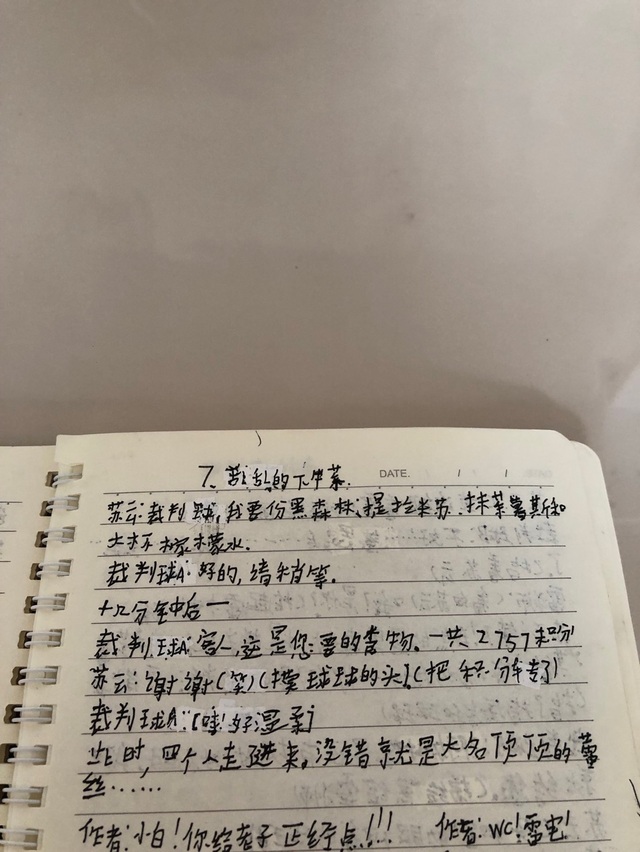 7. 混乱的下午茶.
DATE.
苏云:裁判球,我要份黑森林,提拉米苏.抹茶慕斯和
大杯柠檬水.
裁判球A:好的,请稍等.
十几分钟后一
裁判球A:客人这是您要的食物.一共2757积分
苏云:谢谢(笑)(摸球球的头)(把积分转了)
裁判球A:[哇!好温柔]
此时,四个人走进来。没错就是大名顶顶的
丝……
作者:小白!你给老子正经点!!! 作者:WC!雷电!